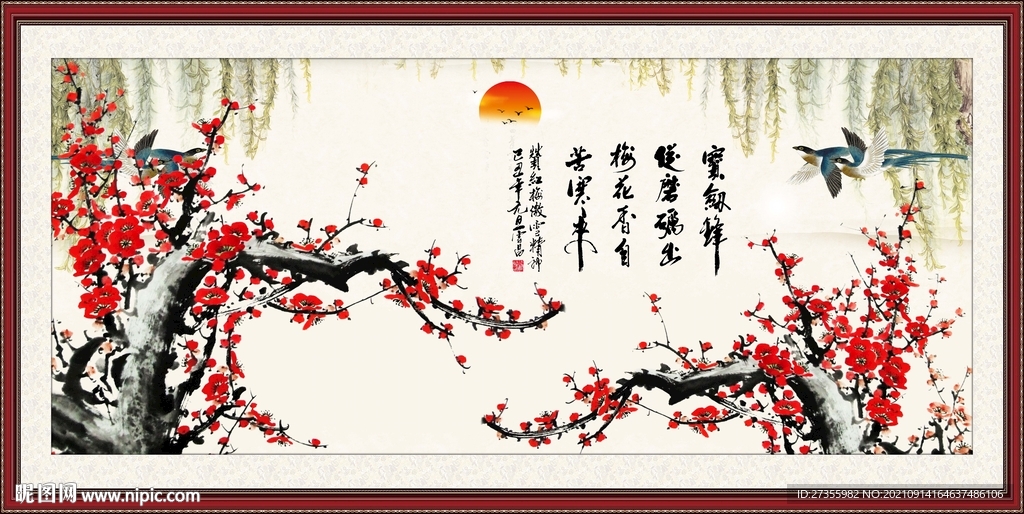 寶劍鋒
從磨礪出
梅花香自
苦寒來
贊紅梅傲雪精神
己丑年元月雲昌
昵图网 www.nipic.com
ID:27355982 NO:20210914164637486106